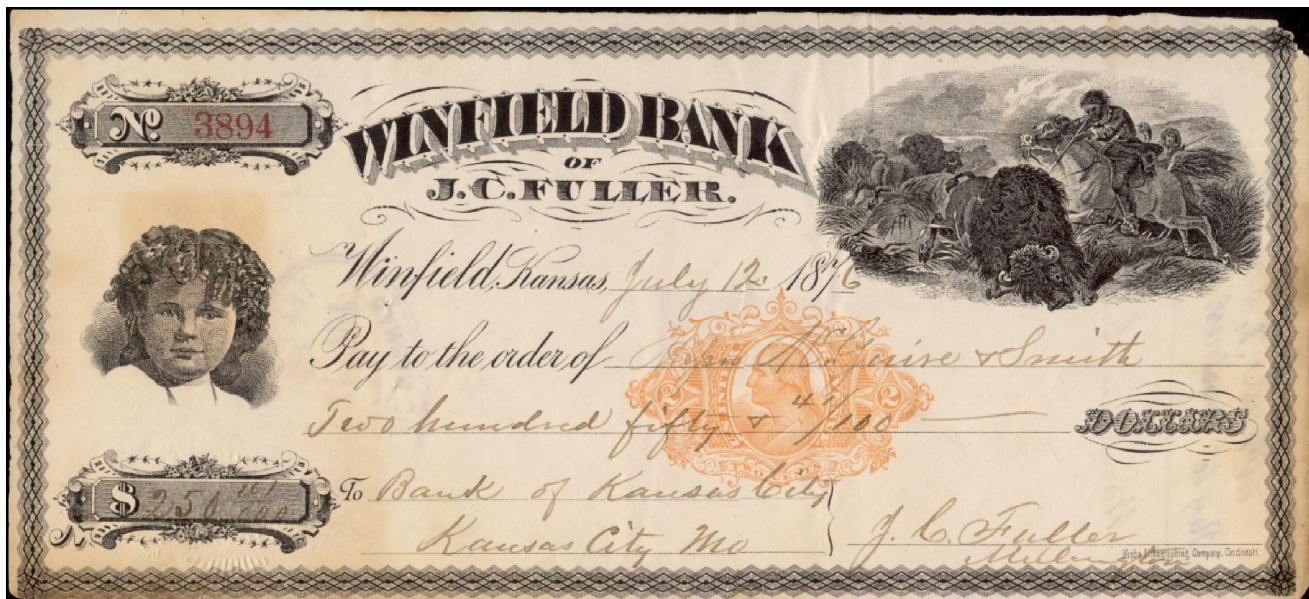 No 3894
WINFIELD BANK
OF
J.C. FULLER.
Winfield, Kansas, July 12. 1876
Pay to the order of & Smith
Two hundred fifty & /100 DOLLARS
$ 250
To Bank of Kansas City
Kansas City Mo
J. C. Fuller
Lithographing Company, Cincinnati
2 2